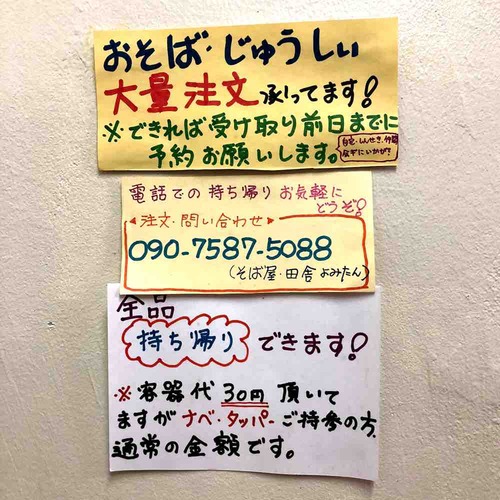 おそば・じゅうしぃ
大量注文承ってます!
※できれば受け取り前日までに
予約お願いします。
自宅・しんせき・仲間
電話での持ち帰りお気軽に
どうぞ!
注文・問い合わせ
090-7587-5088
(そば屋・田舎よみたん)
全品
持ち帰りできます!
※容器代30円頂いて
ますがナベ・タッパーご持参の方、
通常の金額です。